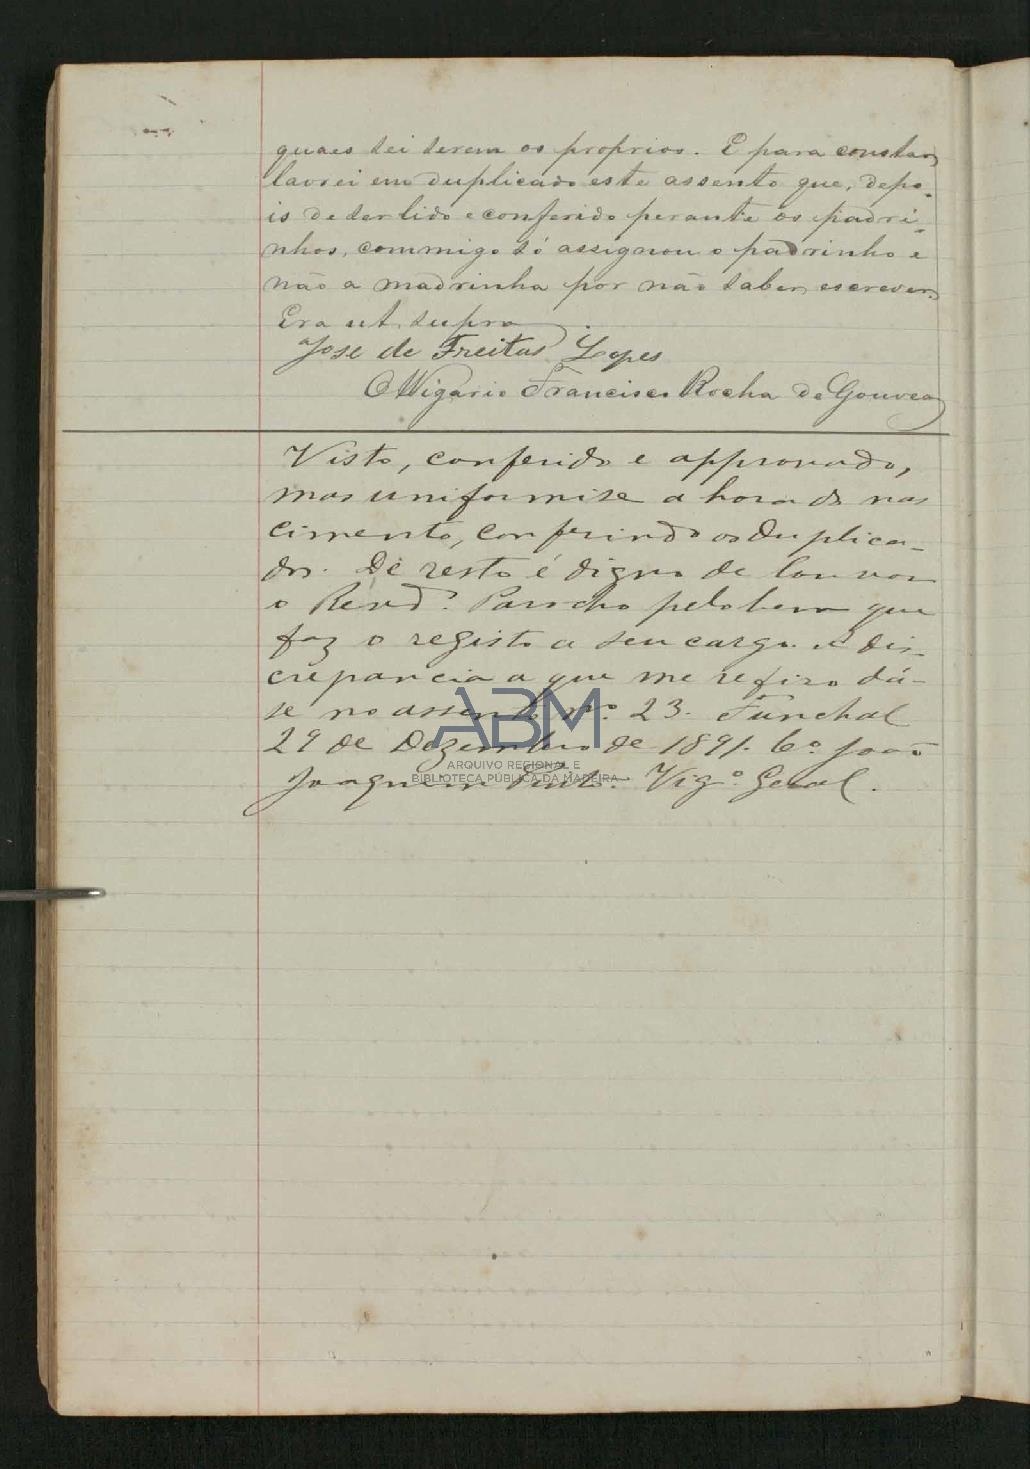 quaes sei serem os proprios. E para constar,
lavrei em duplicado este assento que, depo-
is de ser lido e conferido perante os padri-
nhos, commigo só assignou o padrinho e
não a madrinha por não saber escrever.
Era ut supra
Jose de Freitas Lopes
O Vigario Francisco Rocha de Gouvea
Visto, conferido e approvado,
mas uniformise a hora do nas
cimento, conferindo os duplica-
dos. De resto é digno de louvor
o Revd.º Parocho pelo bem que
faz o registo a seu cargo. A dis-
crepancia a que me refiro dá-
se no assento nº 23. Funchal
29 de Dezembro de 1891. Cº João
Joaquim Pinto. Vigº Geral.
ABM
ARQUIVO REGIONAL E
BIBLIOTECA PÚBLICA DA MADEIRA